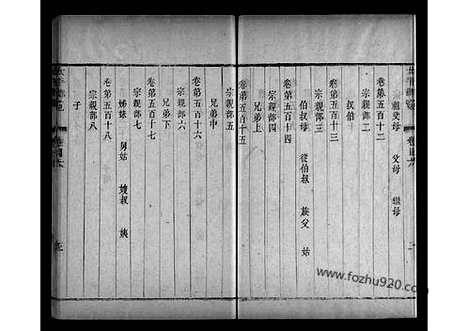 祖父母 父母 繼母
卷第五百十二
宗親部二
叔伯
卷第五百十三
宗親部三
伯叔 從伯叔 族父 姑
卷第五百十四
宗親部四
兄弟上
卷第五百十五
宗親部五
兄弟中
卷第五百十六
宗親部六
兄弟下
卷第五百十七
宗親部七
姊妹 舅姑 嫂叔 姨
卷第五百十八
宗親部八
子
https://www.fozhu920.com/